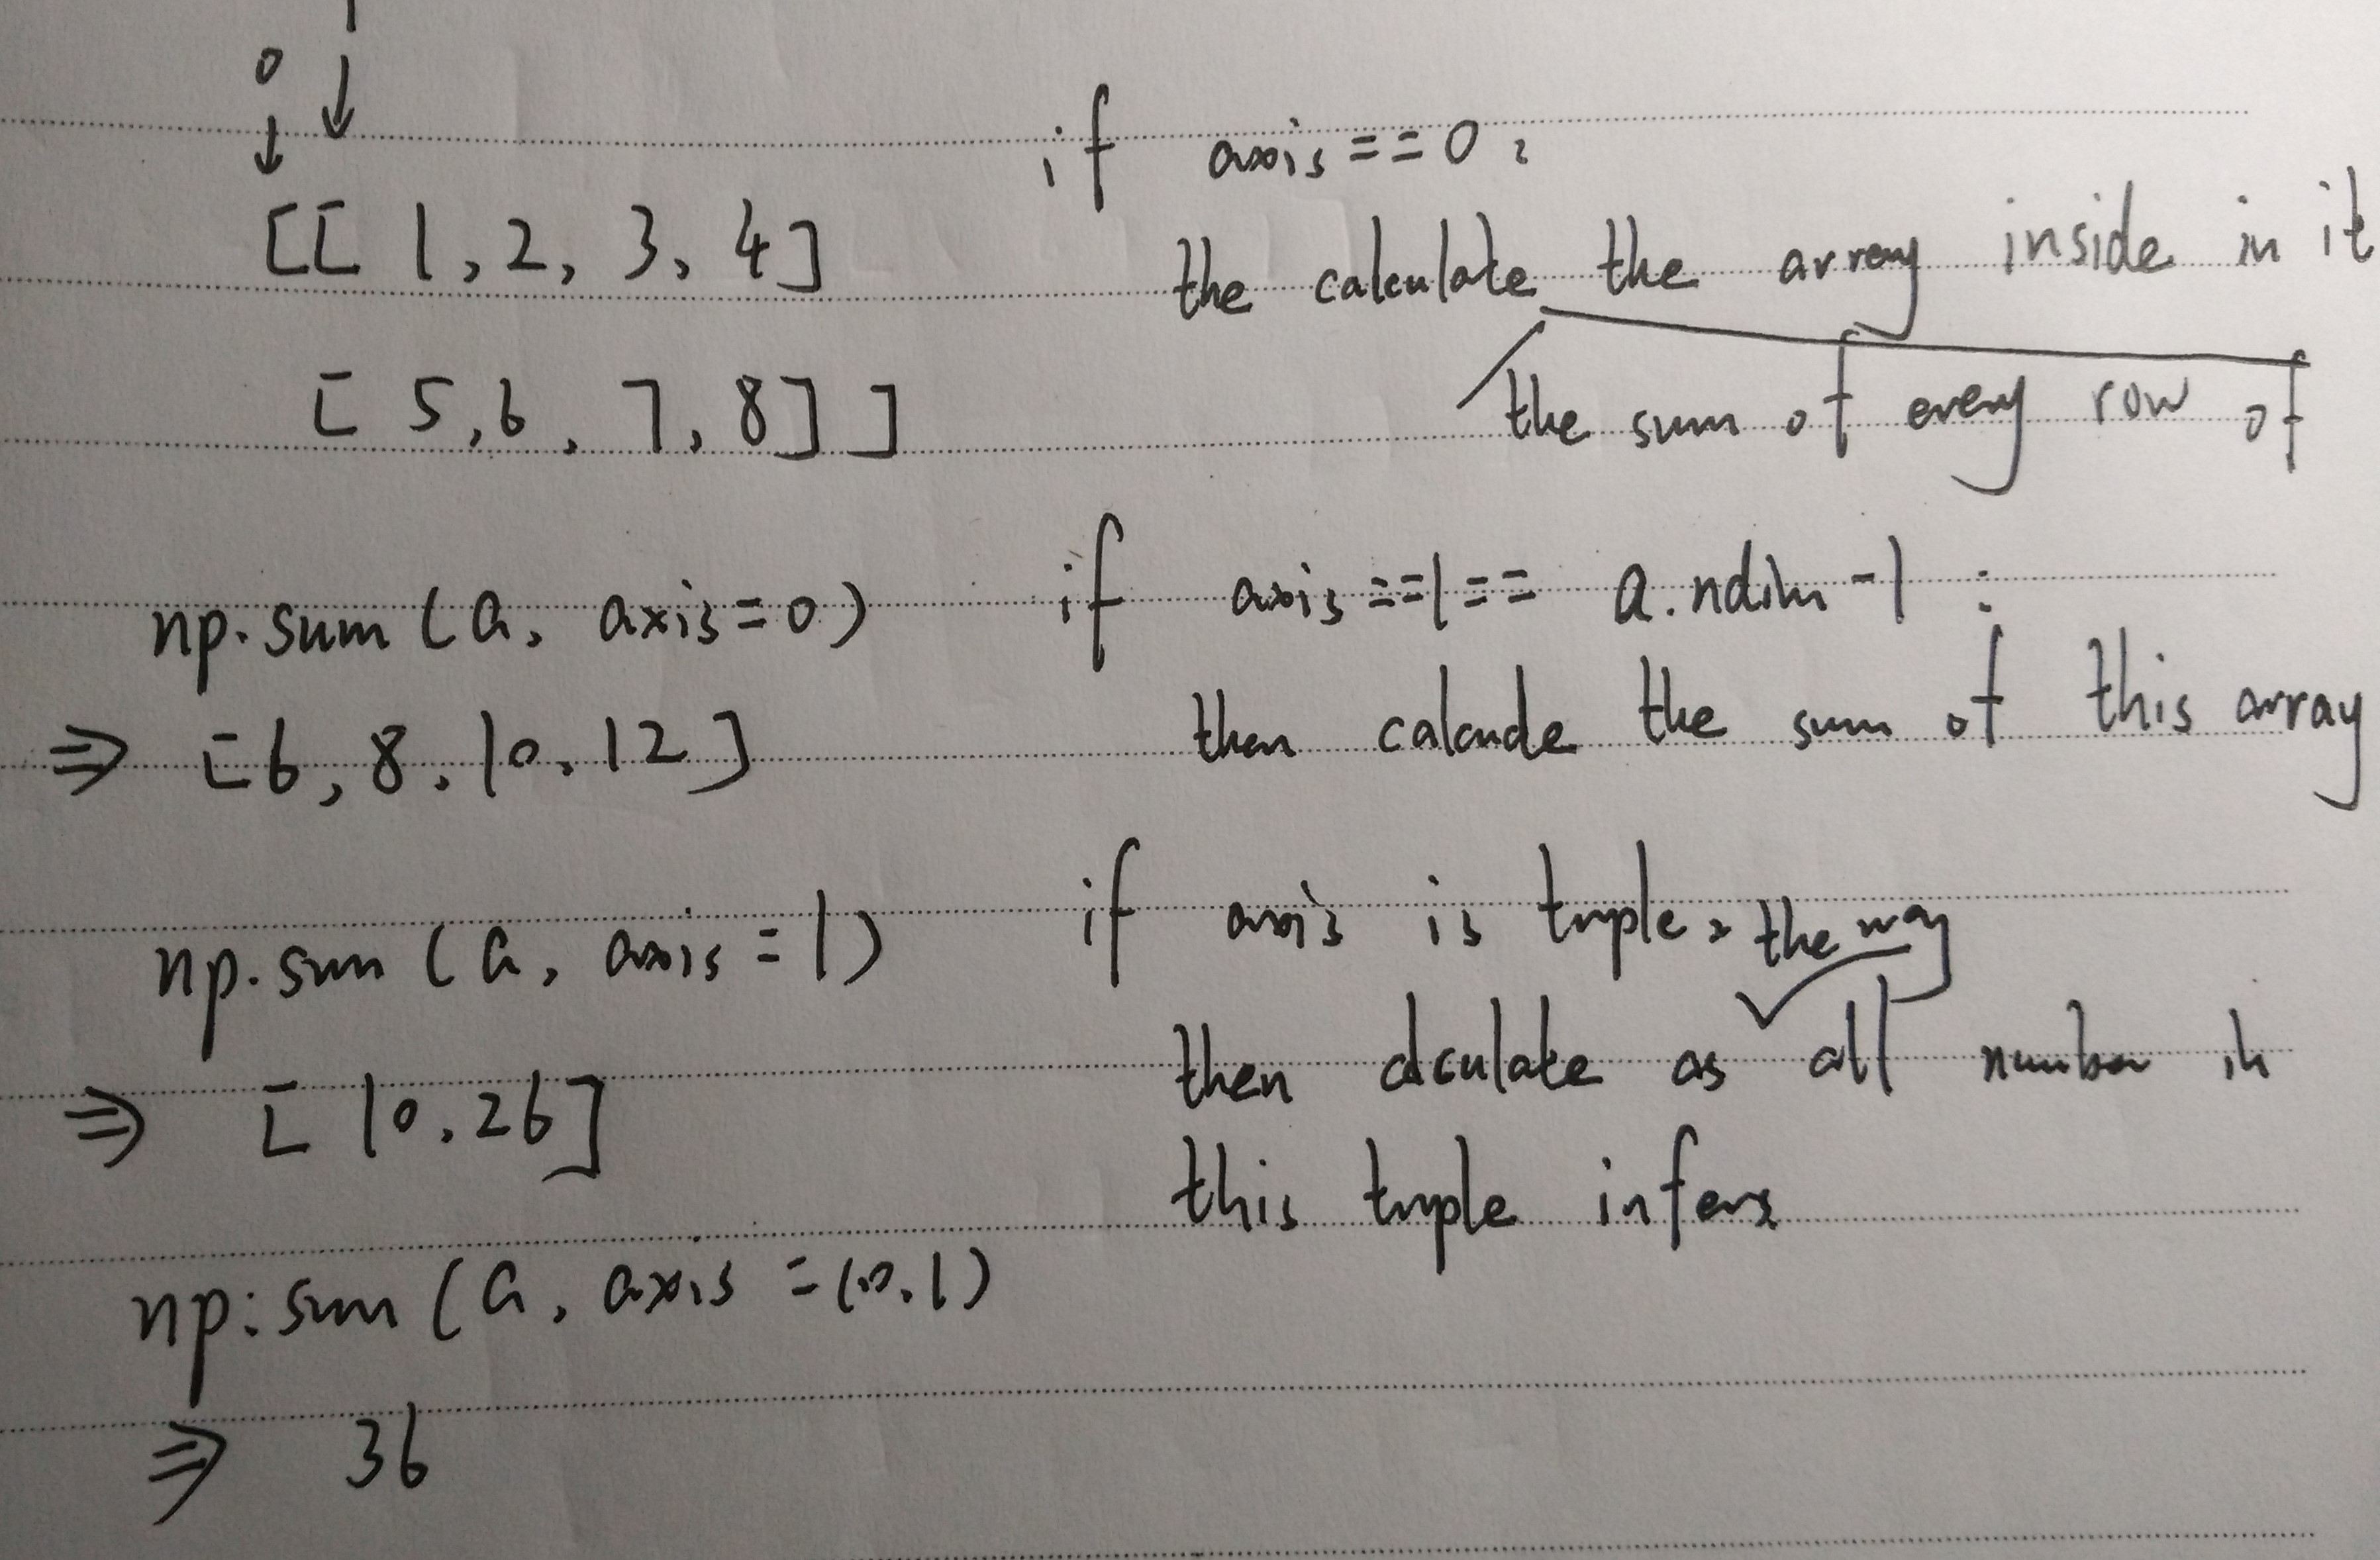 0
[[ 1, 2, 3, 4]
[ 5, 6, 7, 8] ]
np.sum (a, axis=0)
⇒ [6, 8, 10, 12]
np.sum (a, axis=1)
⇒ [10, 26]
np:sum (a, axis =(0,1)
⇒ 36
if axis==0:
the calculate the array inside in it
the sum of every row of
if axis==1== a.ndim-1 :
then the sum of this array
if axis is tuple, the way
then calculate as all number in
this tuple infers